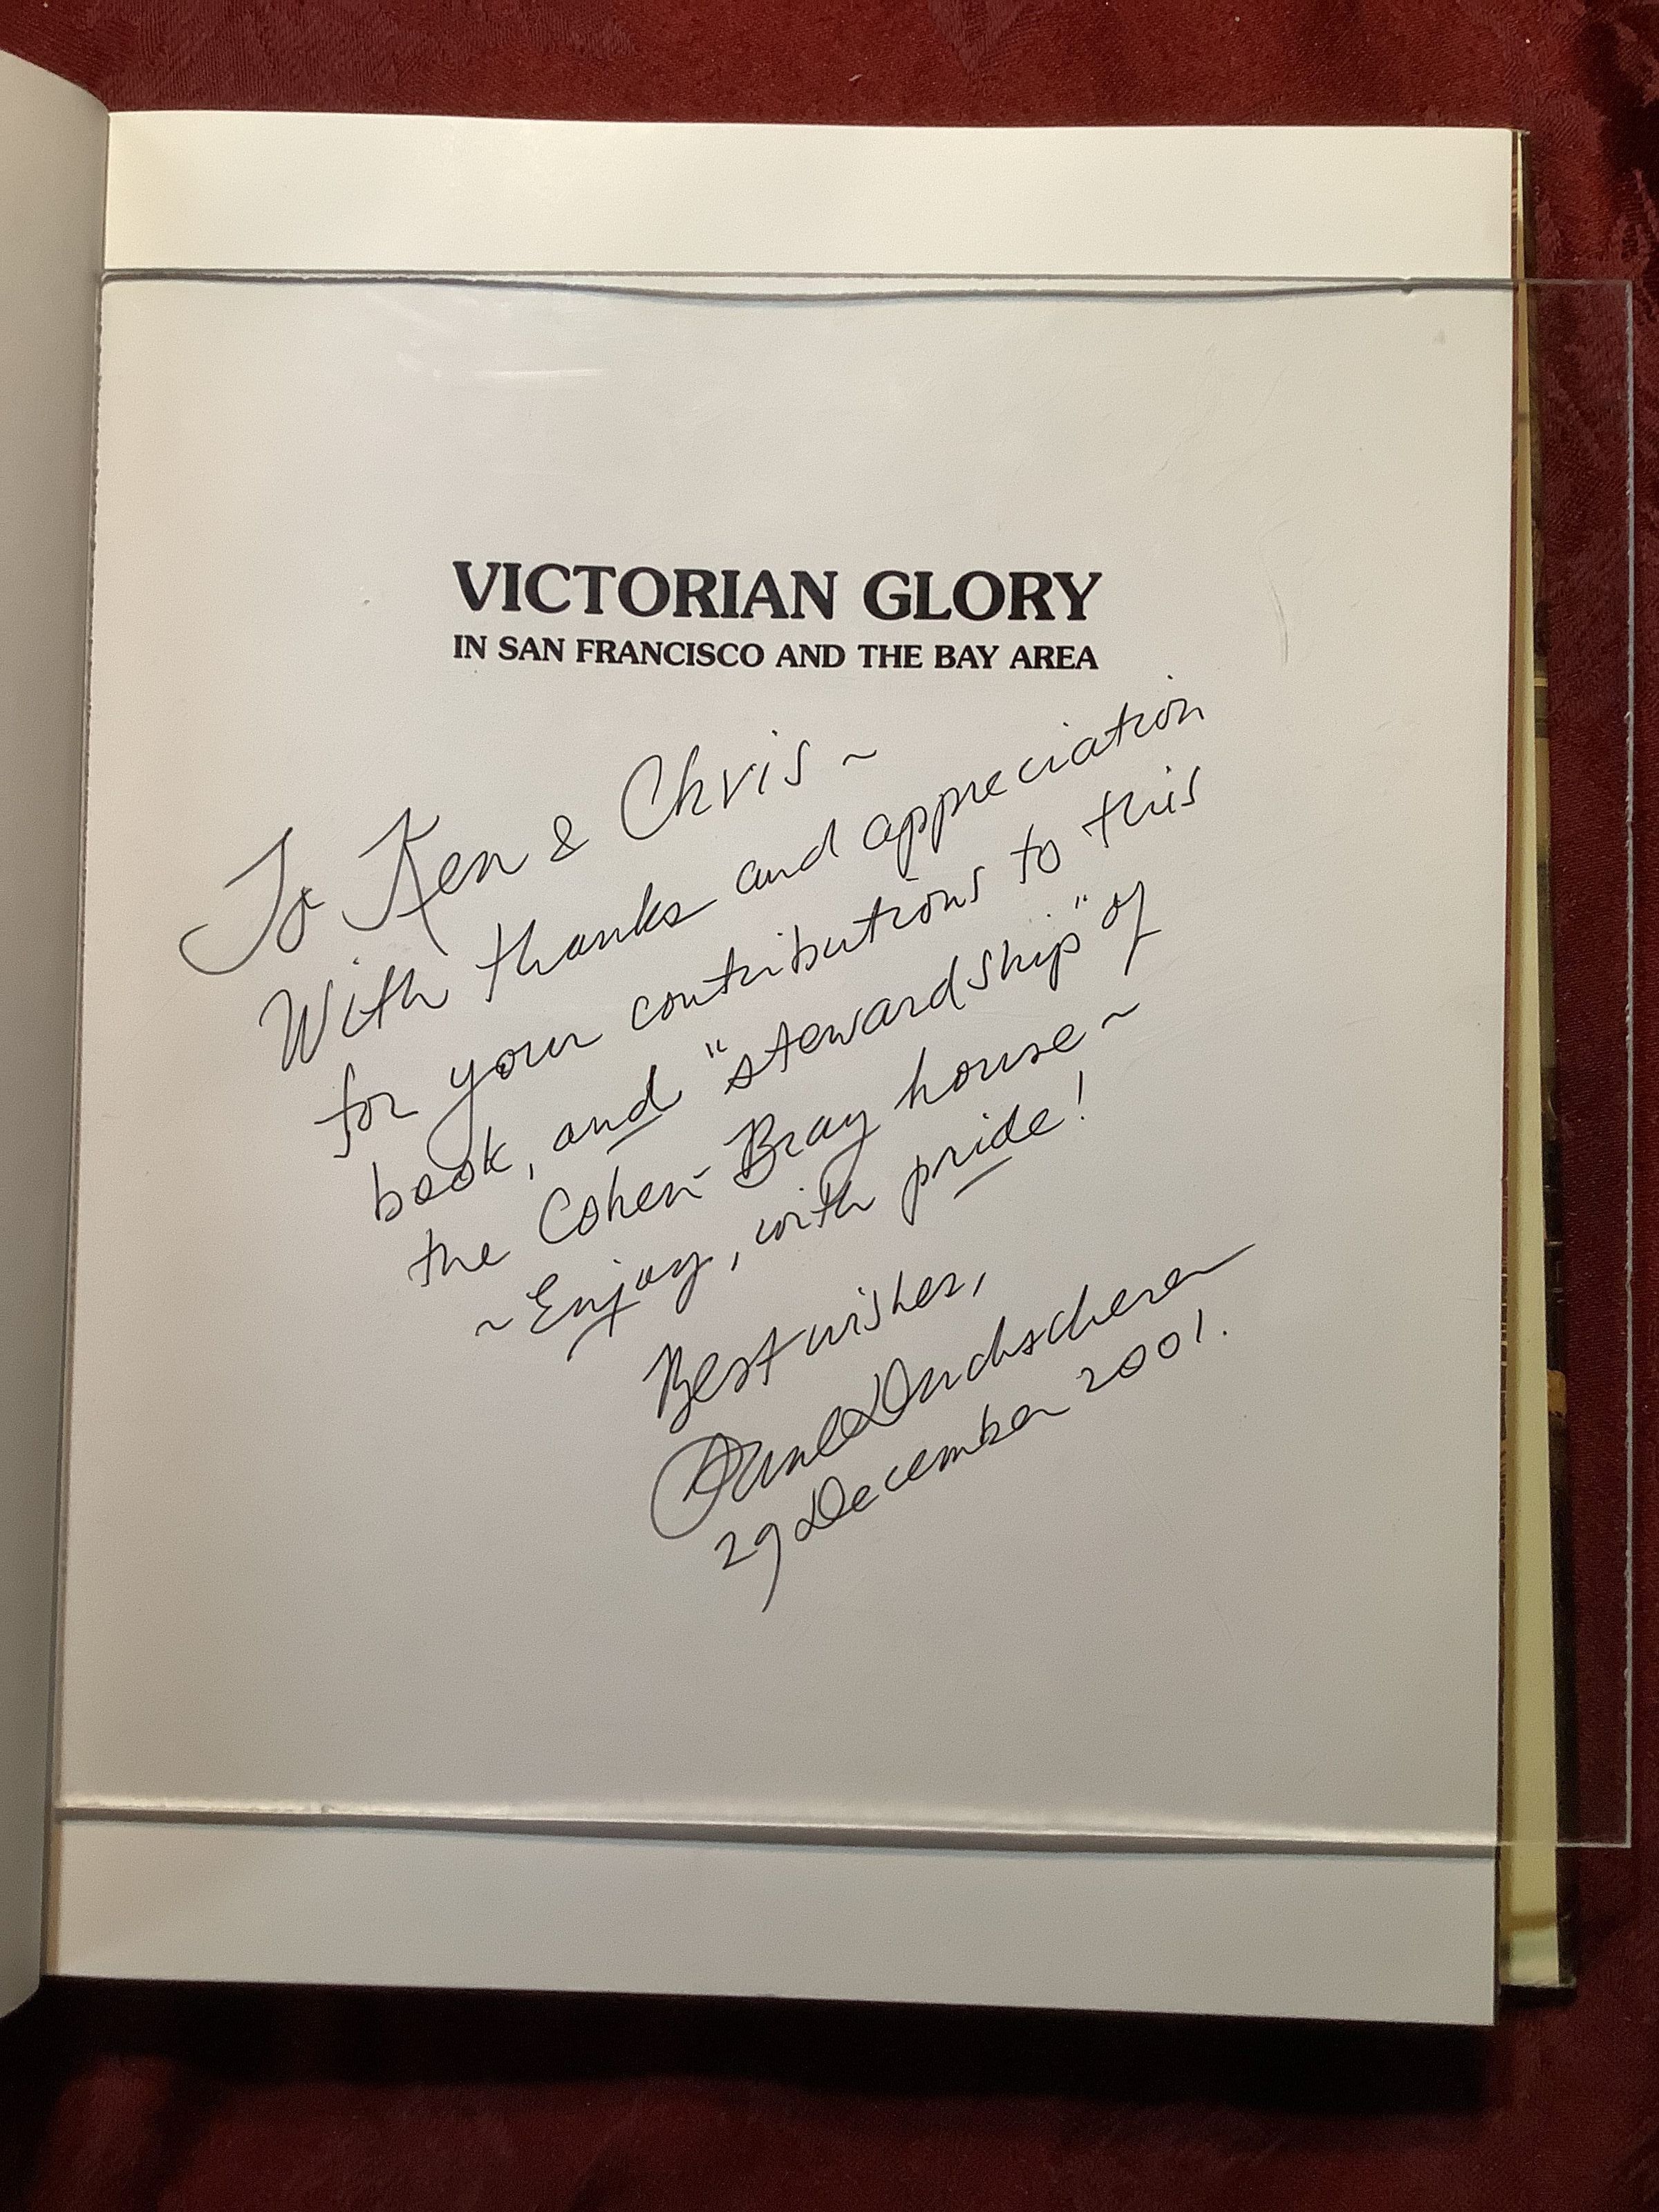 VICTORIAN GLORY
IN SAN FRANCISCO AND THE BAY AREA
To Ken & Chris ~
With thanks and appreciation
for your contributions to this
book, and "stewardship" of
the Cohen-Bray house ~
~ Enjoy, with pride!
Best wishes,
Paul Duchscherer
29 December 2001.